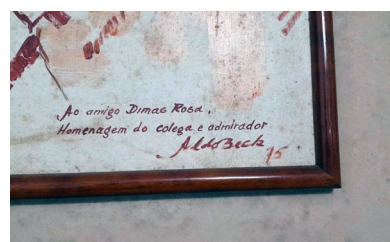 Ao amigo Dimas Rosa,
Homenagem do colega e admirador
Aldo Beck 75